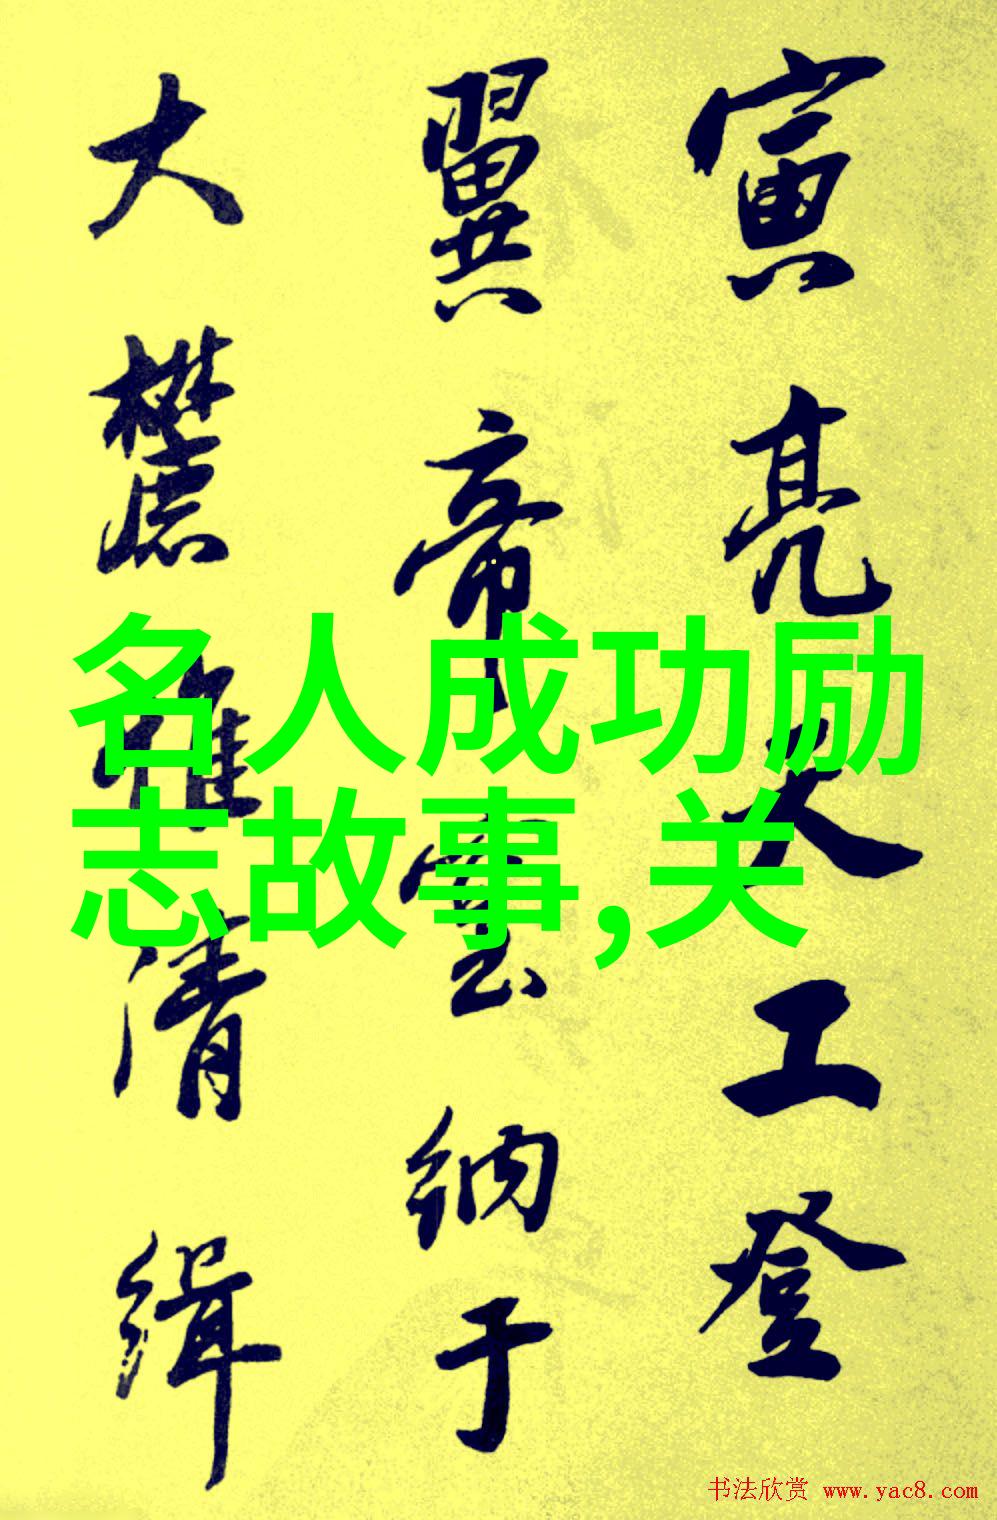 寅亮天工登
翼帝室纳于
大麓雅清缉
名人成功励
志故事,关
书法欣赏 www.yac8.com